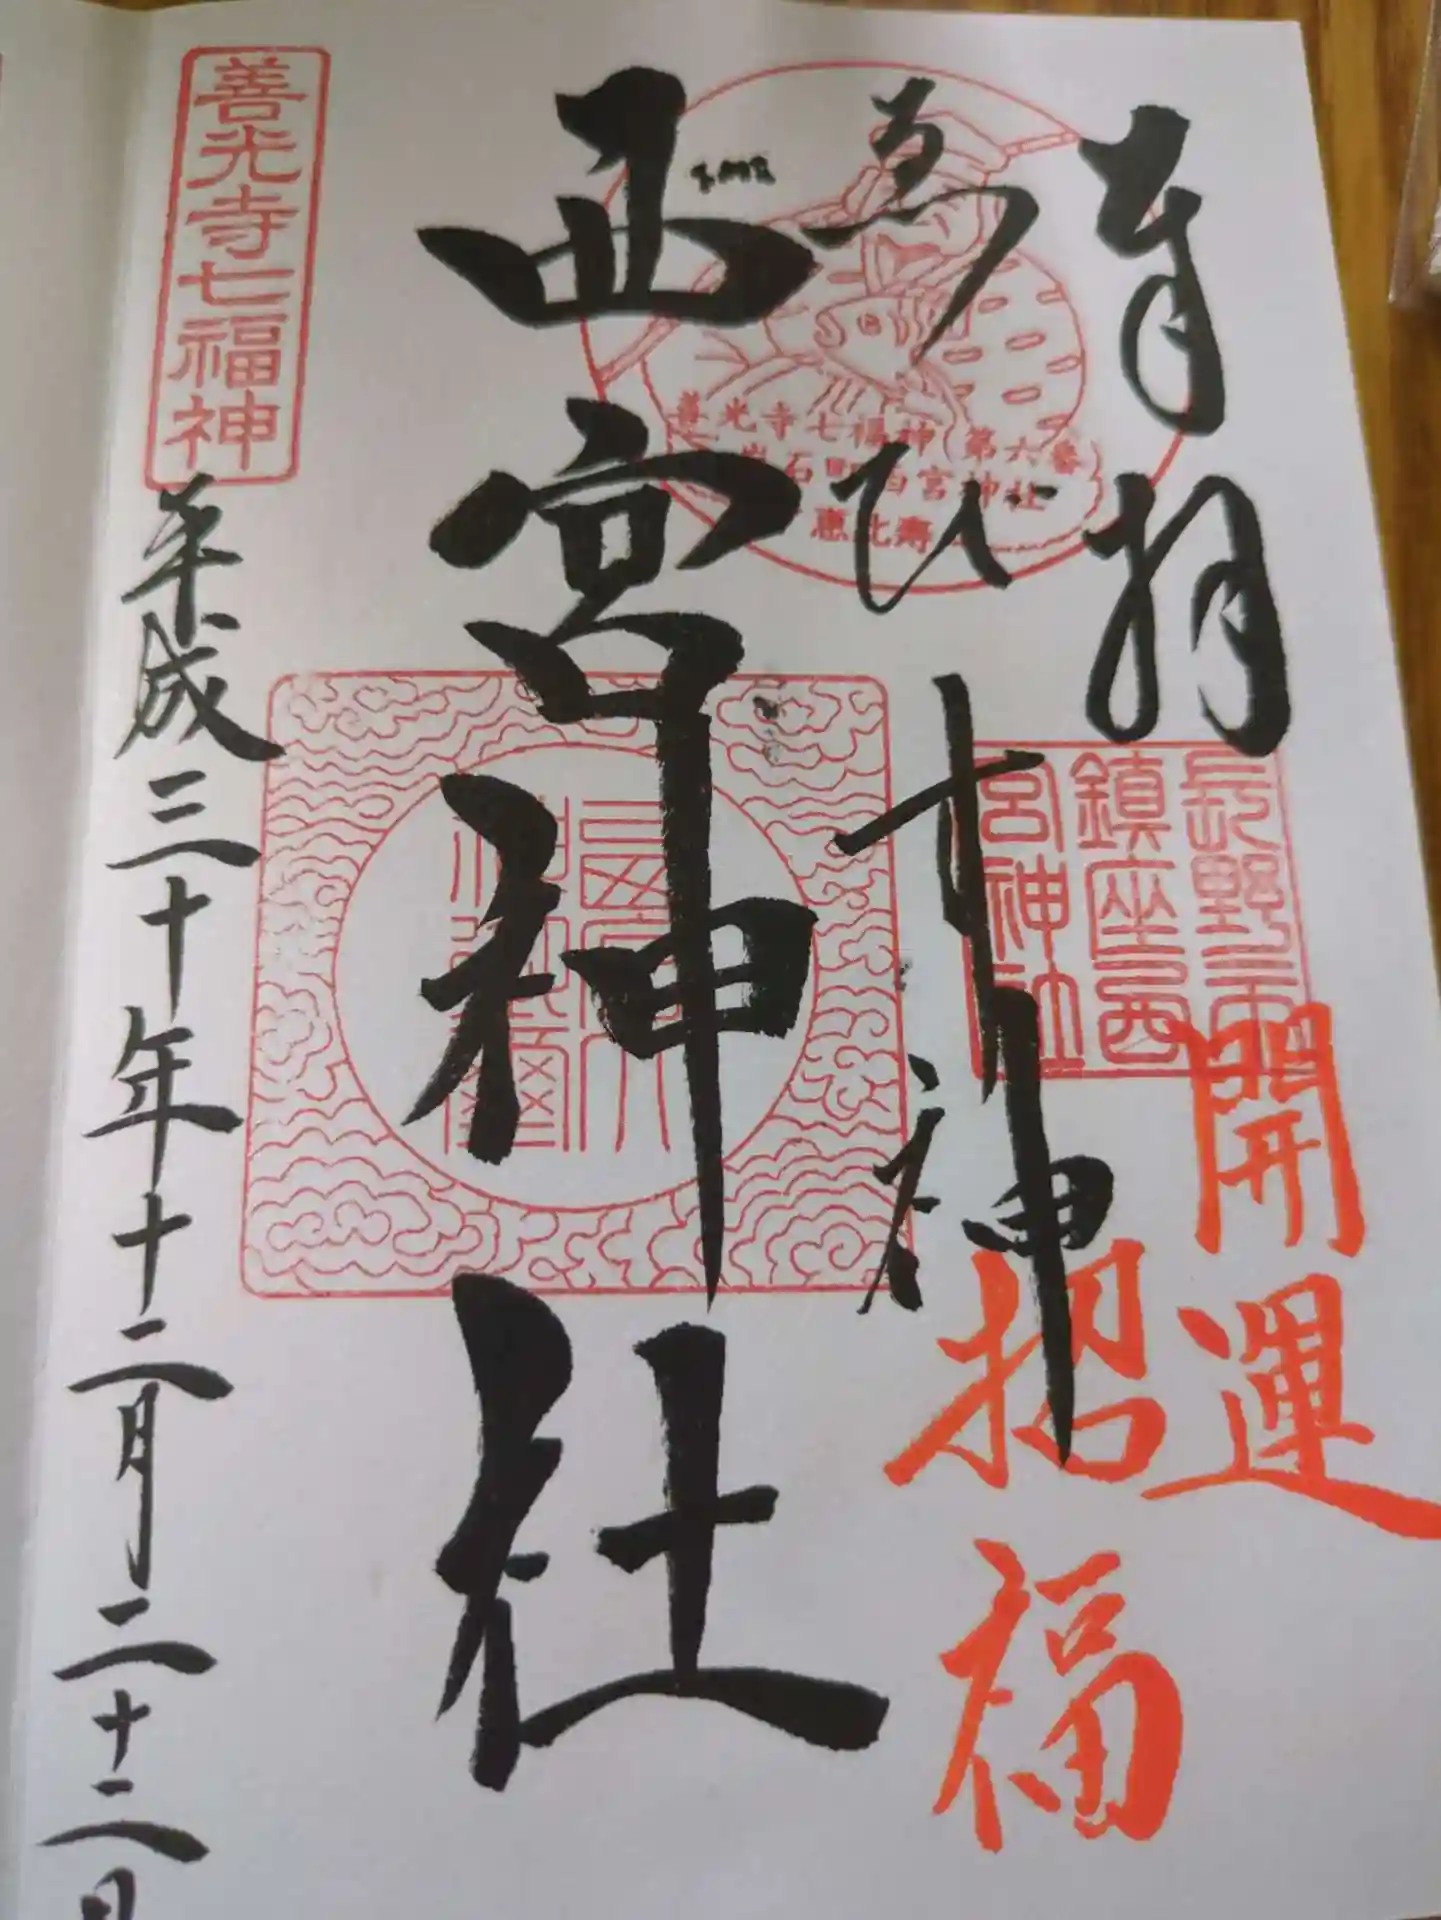 奉拝
開運
招福
長野市
鎮座西
宮神社
ゑびす神
善光寺七福神 第六番
岩石町西宮神社
恵比寿
西宮神社
善光寺七福神
平成三十年十二月二十二日